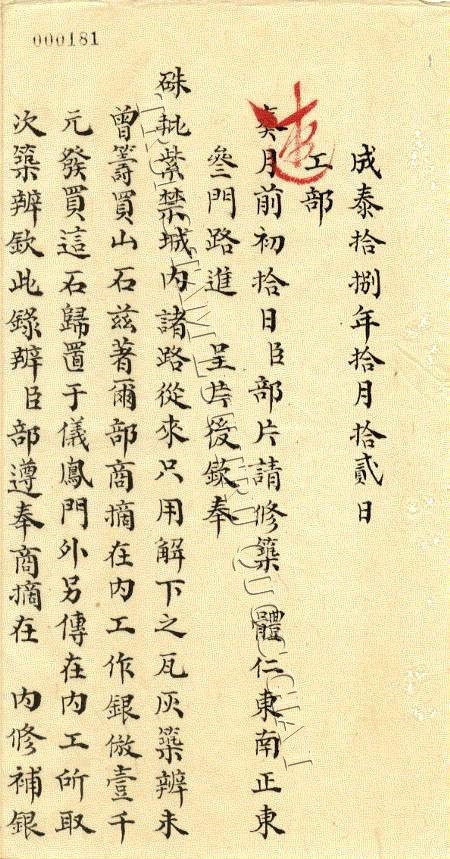 000181
成泰拾捌年拾月拾貳日
工部
奏月前初拾日臣部片請修築 體仁東南正東
叄門路進 呈片後欽奉
硃批紫禁城內諸路從來只用解下之瓦灰築辨未
曾籌買山石茲著爾部商摘在內工作銀倣壹千
元發買這石歸置于儀鳳門外另傳在內工所取
次築辨欽此錄辨臣部遵奉商摘在 內修補銀